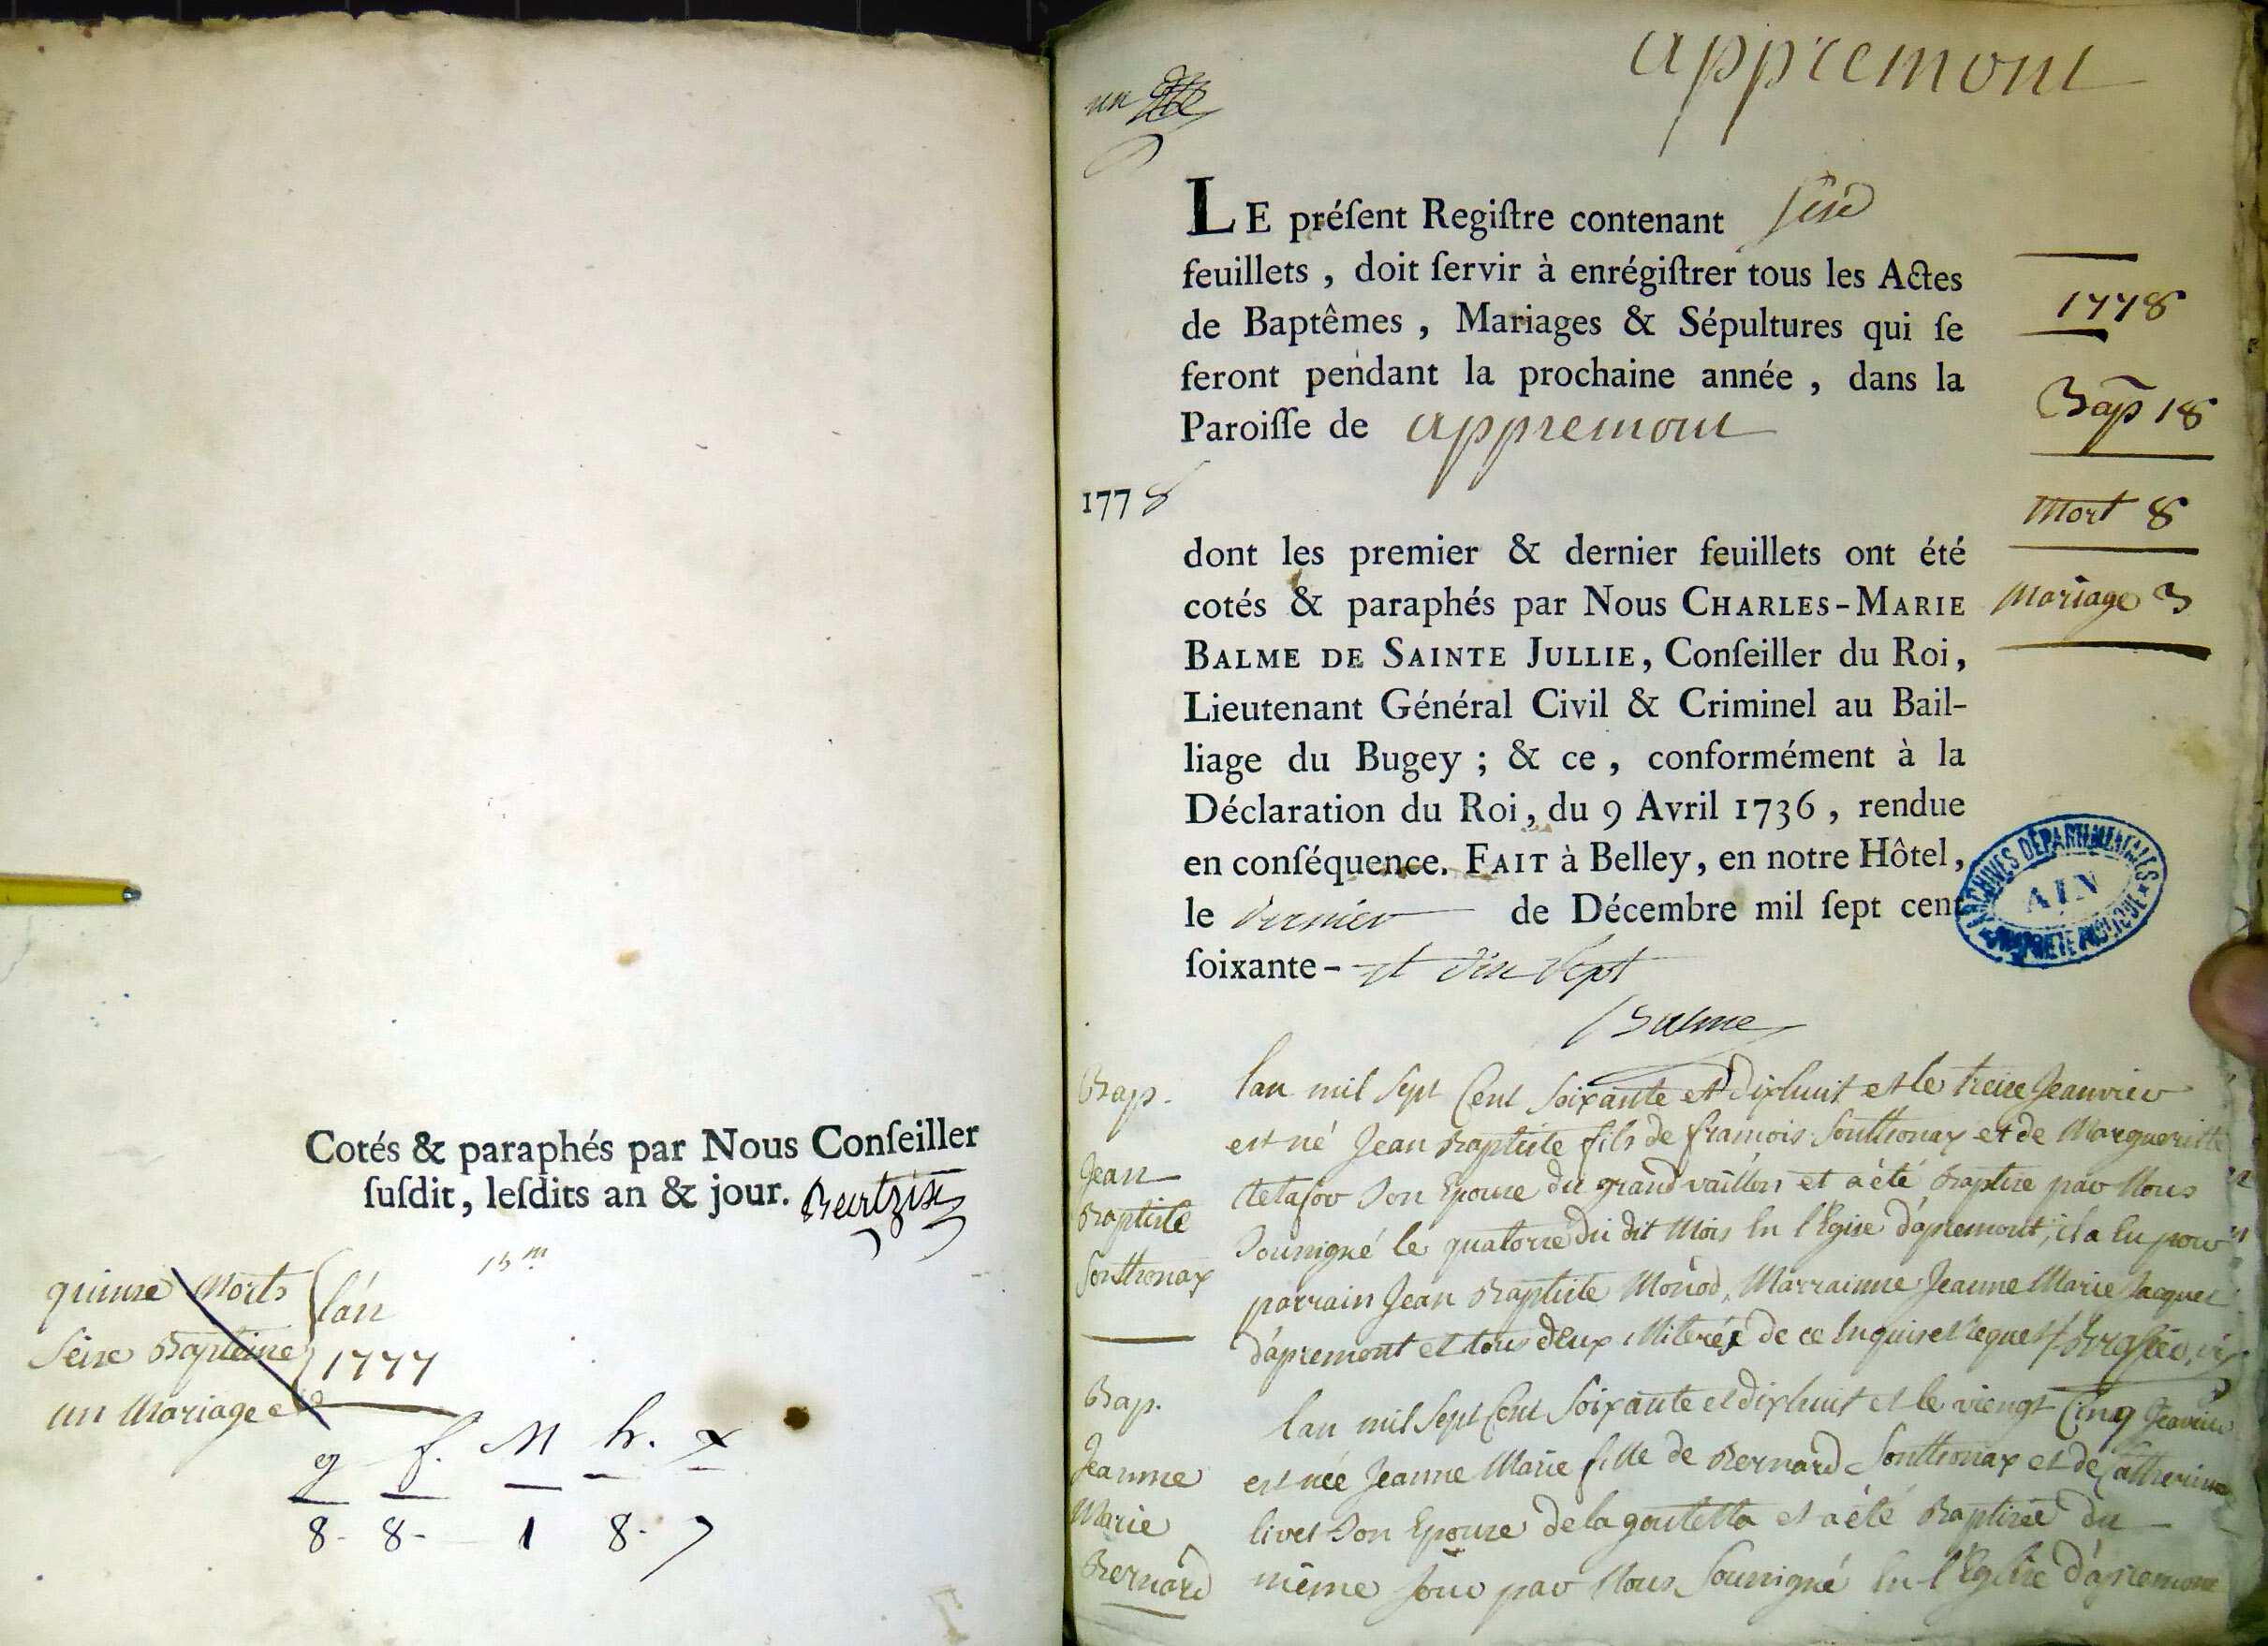 Cotés & paraphés par Nous Conſeiller
ſuſdit, leſdits an & jour.
15m
quinze Morts
l'an
Seize Bapteme
1777
un Mariage
g f. M h. x
8- 8- 1 8- 7
un
appremont
LE préſent Regiſtre contenant
feuillets, doit ſervir à enrégiſtrer tous les Actes
de Baptêmes, Mariages & Sépultures qui ſe
feront pendant la prochaine année, dans la
Paroiſſe de appremont
1778
dont les premier & dernier feuillets ont été
cotés & paraphés par Nous CHARLES-MARIE
BALME DE SAINTE JULLIE, Conſeiller du Roi,
Lieutenant Général Civil & Criminel au Bail-
liage du Bugey; & ce, conformément à la
Déclaration du Roi, du 9 Avril 1736, rendue
en conſéquence. FAIT à Belley, en notre Hôtel,
le dernier de Décembre mil ſept cent
ſoixante- et dix sept
Balme
1778
Bap 18
Mort 8
Mariage 3
ARCHIVES DÉPARTEMENTALES
AIN
PROPRIÉTÉ PUBLIQUE
Bap.
Jean
Baptiste
Sonthonax
lan mil Sept Cent Soixante et dixhuit et le treize Jeanvier
est né Jean Baptiste fils de francois Sonthonax et de Margueritte
son Epouse du grand vaillon et a été Baptizé par Nous
Soussigné le quatorze du dit Mois En l'Eglise d'apremont, il a Eu pour
parrain Jean Baptiste Monod, Marrainne Jeanne Marie Jacquet
d'apremont et tous deux illiterés de ce Enquis et Requis
Bap.
Jeanne
Marie
Bernard
lan mil Sept Cent Soixante et dixhuit et le viengt Cinq Jeanvier
est née Jeanne Marie fille de Bernard Sonthonax et de Catherine
livet Son Epouse de la goutetta et a été Baptizée du
même Jour par Nous Soussigné En l'Eglise d'apremont